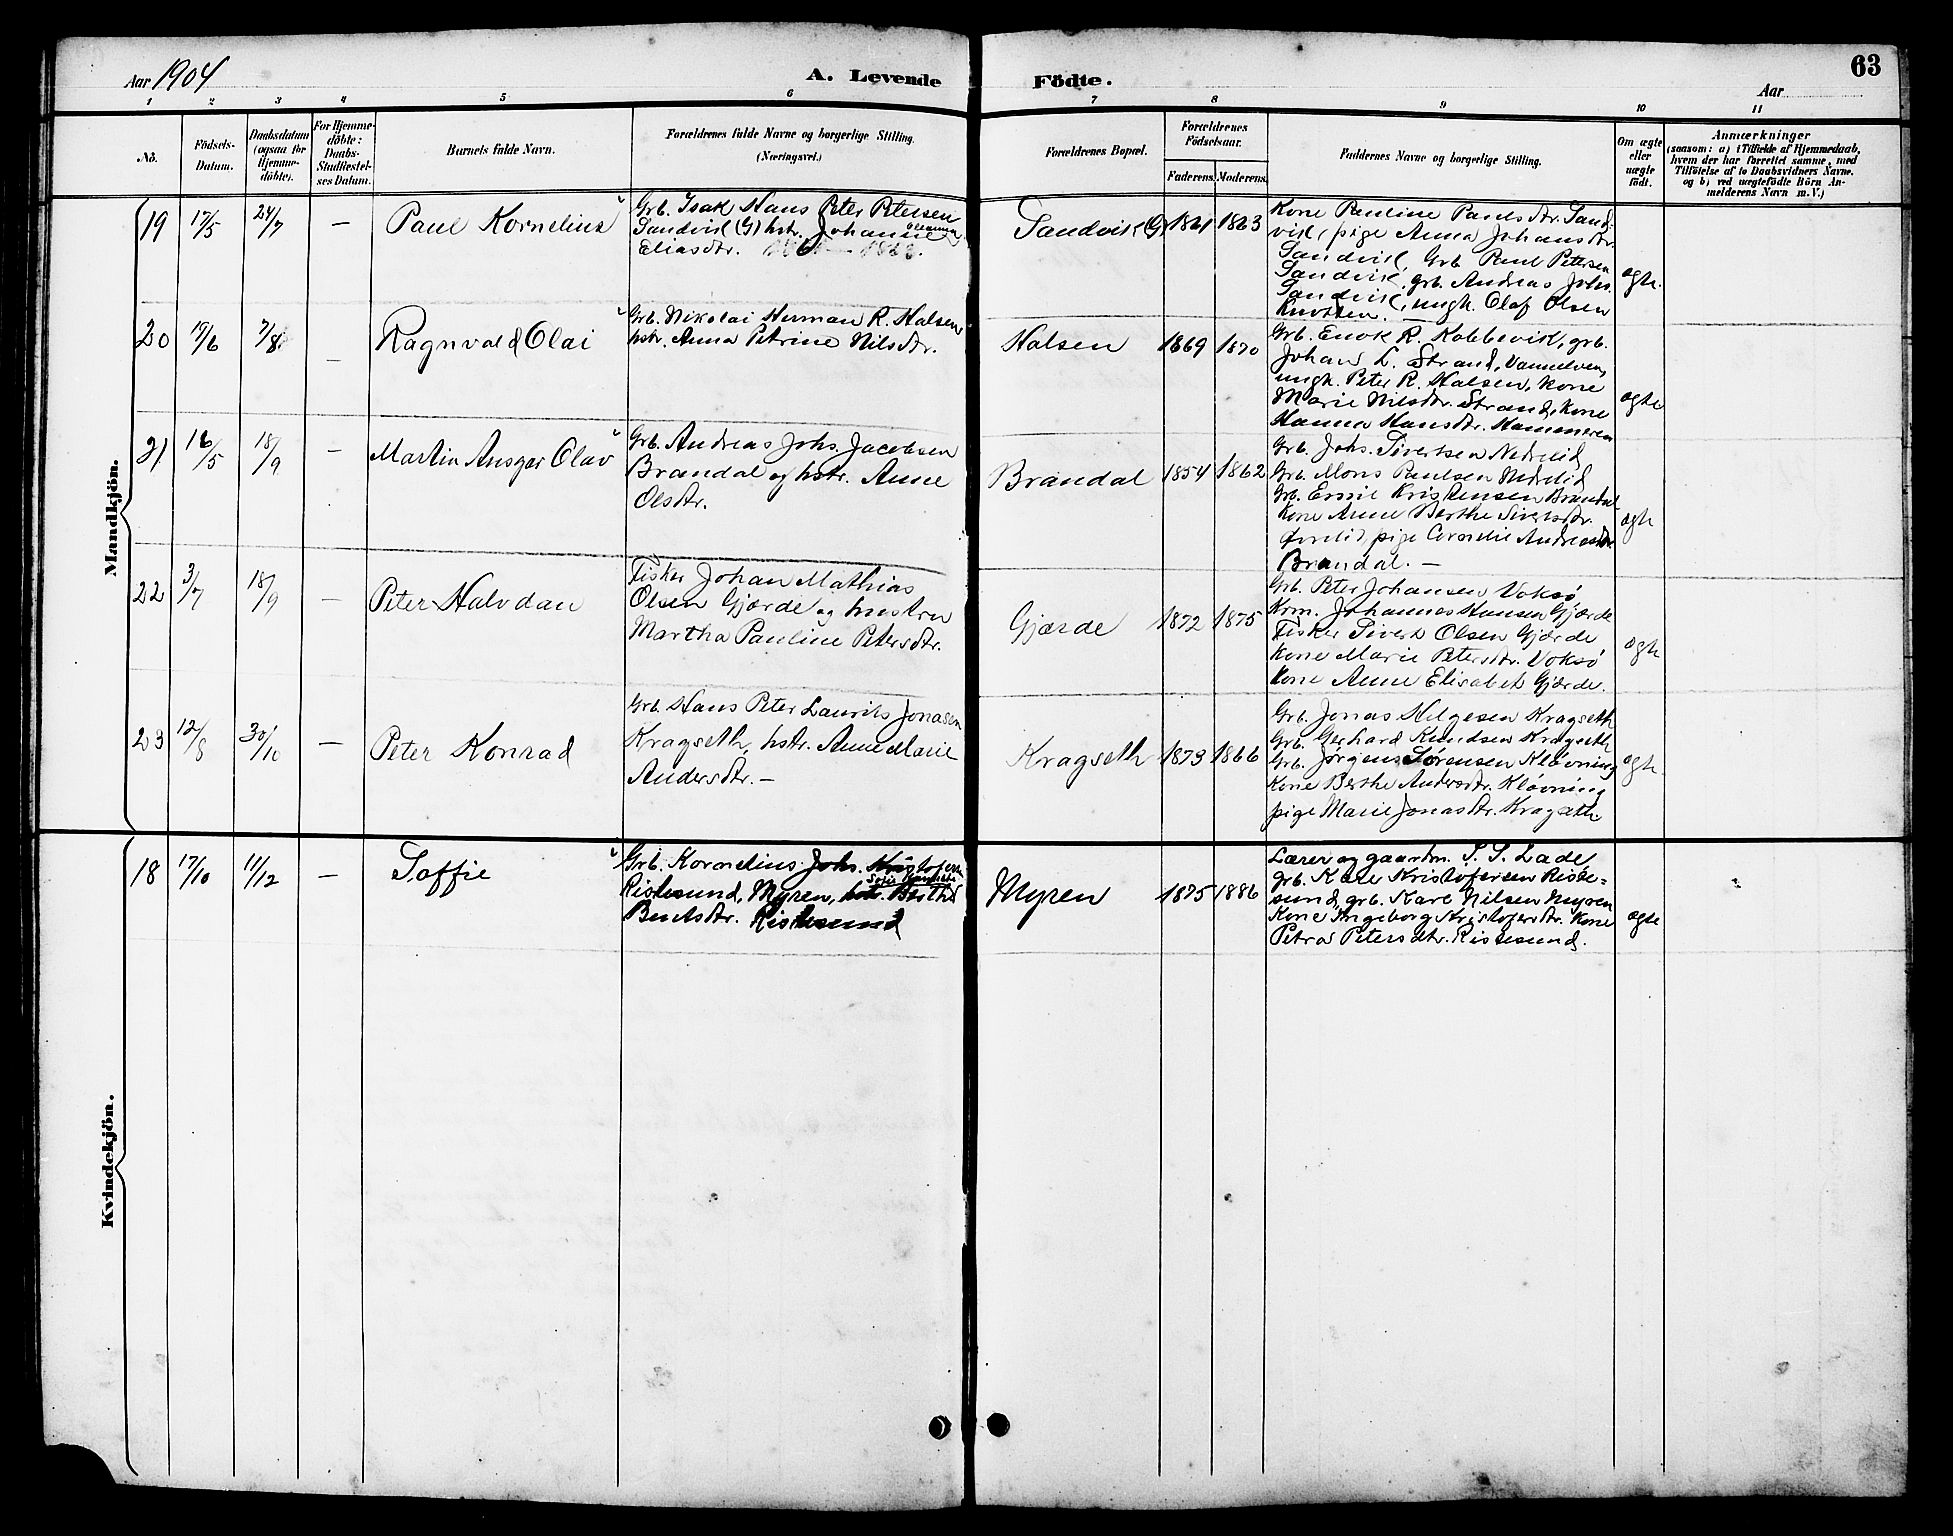 Aar 1904
A. Levende Födte.
Aar
63
1 2 3 4 5 6 7 8 9 10 11
No.
Födsels-
Datum.
Daabsdatum
(ogsaa for
Hjemme-
döbte).
For Hjemme-
döbte:
Daabs-
Stadfæstel-
ses Datum.
Barnets fulde Navn.
Forældrenes fulde Navne og borgerlige Stilling.
(Næringsvei.)
Forældrenes Bopæl.
Forældrenes
Födselsaar.
Faderens. Moderens.
Faddernes Navne og borgerlige Stilling.
Om ægte
eller
uægte
födt.
Anmærkninger
(saasom: a) i Tilfælde af Hjemmedaab,
hvem der har forrettet samme, med
Tilföielse af to Daabsvidners Navne.
og b) ved uægtefödte Börn An-
melderens Navn m. V.)
Mandkjön.
19
17/5
24/7
—
Paul Kornelius
Grb. Isak Hans Peter Petersen
Sandvik (G) hstr. Johanne
Eliasdtr.
Sandvik (G)
1861
1863
Kone Pauline Paulsdtr. Sand-
vik, pige Anna Johansdtr.
Sandvik, Grb Paul Petersen
Sandvik, grb. Andreas Johs.
Sandvik, ungk. Olaf Olsen
Knotten. —
ægte.
20
17/6
7/8
—
Ragnvald Olai
Grb. Nikolai Herman R. Halsen
hstr. Anna Petrine Nilsdtr.
Halsen
1869
1870
Grb. Enok R. Kobbevik, grb.
Johan L. Strand, Vannelven,
ungk. Peter R. Halsen, kone
Marie Nilsdtr. Strand, kone
Hanna Hansdtr. Hammeren
ægte
21
16/5
18/9
—
Martin Ansgar Olav
Grb. Andreas Johs. Jacobsen
Brandal og hstr. Anne
Olsdtr.
Brandal
1854
1862
Grb. Johs. Sivertsen Nedrelid
Grb. Mons Paulsen Nedrelid
Grb. Ernil Kristensen Brandal
Kone Anne Berthe Sivertsdtr.
pige Cornelie Andreasdtr.
Brandal. —
ægte
22
3/7
18/9
—
Peter Halvdan
Fisker Johan Mathias
Olsen Gjærde og hustru
Martha Pauline Petersdtr.
Gjærde
1872
1875
Grb. Peter Johansen Voksø
Krm. Johannes Hansen Gjærde
Fisker Sivert Olsen Gjærde
Kone Marie Petersdtr. Voksø
Kone Anne Elisabet Gjærde.
ægte
23
12/8
30/10
—
Peter Konrad
Grb. Hans Peter Laurits Jonasen
Kragseth, hstr. Anne Marie
Andersdtr. —
Kragseth
1873
1866
Grb. Jonas Helgesen Kragseth
Grb. Gerhard Knudsen Kragseth
Grb. Jørgens Sørensen Kløvning
Kone Berthe Andersdtr. Kløvning
pige Marie Jonasdtr. Kragseth.
ægte
Kvindekjön.
18
17/10
11/12
—
Soffie
Grb. Kornelius Johs. Kristofersen
Ristesund, Myren, hstr. Berthe
Bentsdtr. Ristesund
Myren
1875
1886
Lærer og gaardm. S. S. Lade,
grb. Kare Kristofersen Riste-
sund, grb. Karl Nilsen Myren
Kone Ingeborg Kristofersdtr. Kone
Petra Petersdtr. Ristesund.
ægte